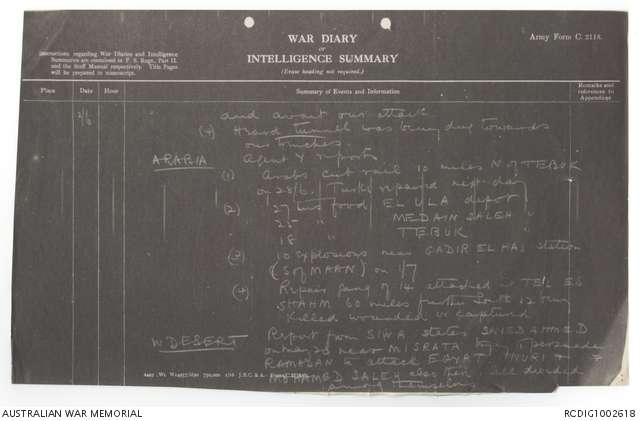 WAR DIARY
or
INTELLIGENCE SUMMARY
(Erase heading not required.)
Army Form C. 2118.
Instructions regarding War Diaries and Intelligence
Summaries are contained in F. S. Regs., Part II.
and the Staff Manual respectively. Title Pages
will be prepared in manuscript.
Place Date Hour Summary of Events and Information Remarks and
references to
Appendices
and await our attack
(4) Heard tunnel was being dug towards
our trenches.
ARABIA Agent Y reports
(1) Arabs cut rail 10 miles N of TEBUK
on 28/6. Turks repaired next day
(2) 27 food EL ULA depot
25 " MEDAIN SALEH "
18 " TEBUK "
(3) 10 explosions near GADIR EL HAJ station
(S of MAAN) on 1/7
(4) Repair gang of 14 attacked at TEL ES
SHAHM 60 miles further South 12 being
killed wounded or captured
W DESERT Report from SIWA states SAIED AHMED
on May 23 near MISRATA to persuade
RAMADAN to attack EGYPT NURI &
MOHAMED SALEH also there all divided
among themselves
AUSTRALIAN WAR MEMORIAL
RCDIG1002618